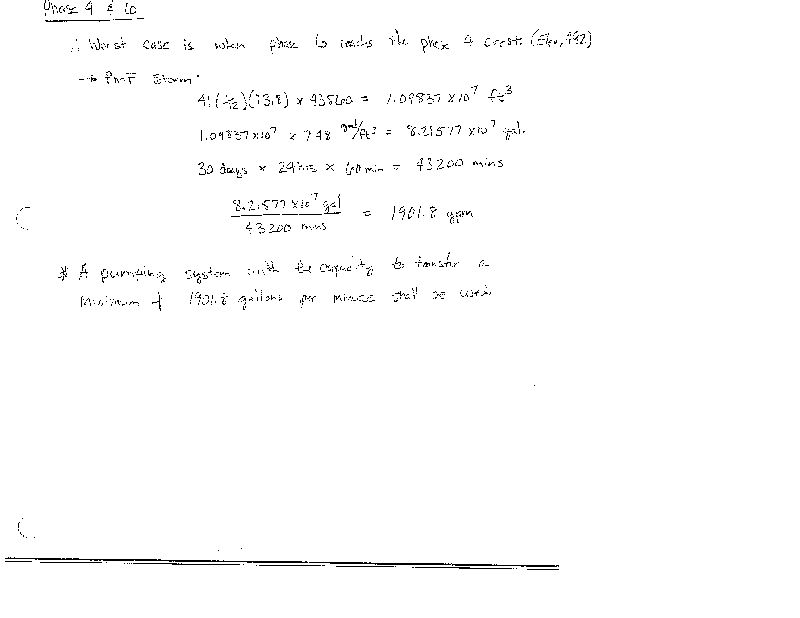 Phase 4 & 6
∴ Worst case is when phase 6 reaches the phase 4 crest (Elev. 992)
→ PMF Storm:
41 (1/12)(73.8) × 43560 = 1.09837 ×10⁷ ft³
1.09837 ×10⁷ × 7.48 gal/ft³ = 8.21577 ×10⁷ gal.
30 days × 24 hrs × 60 min = 43200 mins
8.21577 ×10⁷ gal
43200 mins
= 1901.8 gpm
* A pumping system with the capacity to transfer a
minimum of 1901.8 gallons per minute shall be used